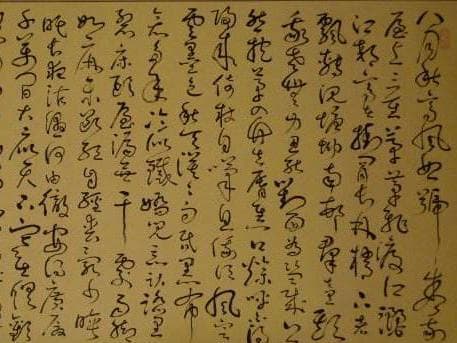 八月秋高風怒號卷我
屋上三重茅茅飛渡江灑
江郊高者掛罥長林梢下者
飄轉沉塘坳南村群童欺
我老無力忍能對面為盜賊公
然抱茅入竹去脣焦口燥呼不得
歸來倚杖自嘆息俄頃風定
雲墨色秋天漠漠向昏黑布
衾多年冷似鐵嬌兒惡臥踏裏
裂床頭屋漏無干處雨腳
如麻未斷絕自經喪亂少睡
眠長夜沾濕何由徹安得廣廈
千萬間大庇天下寒士俱歡